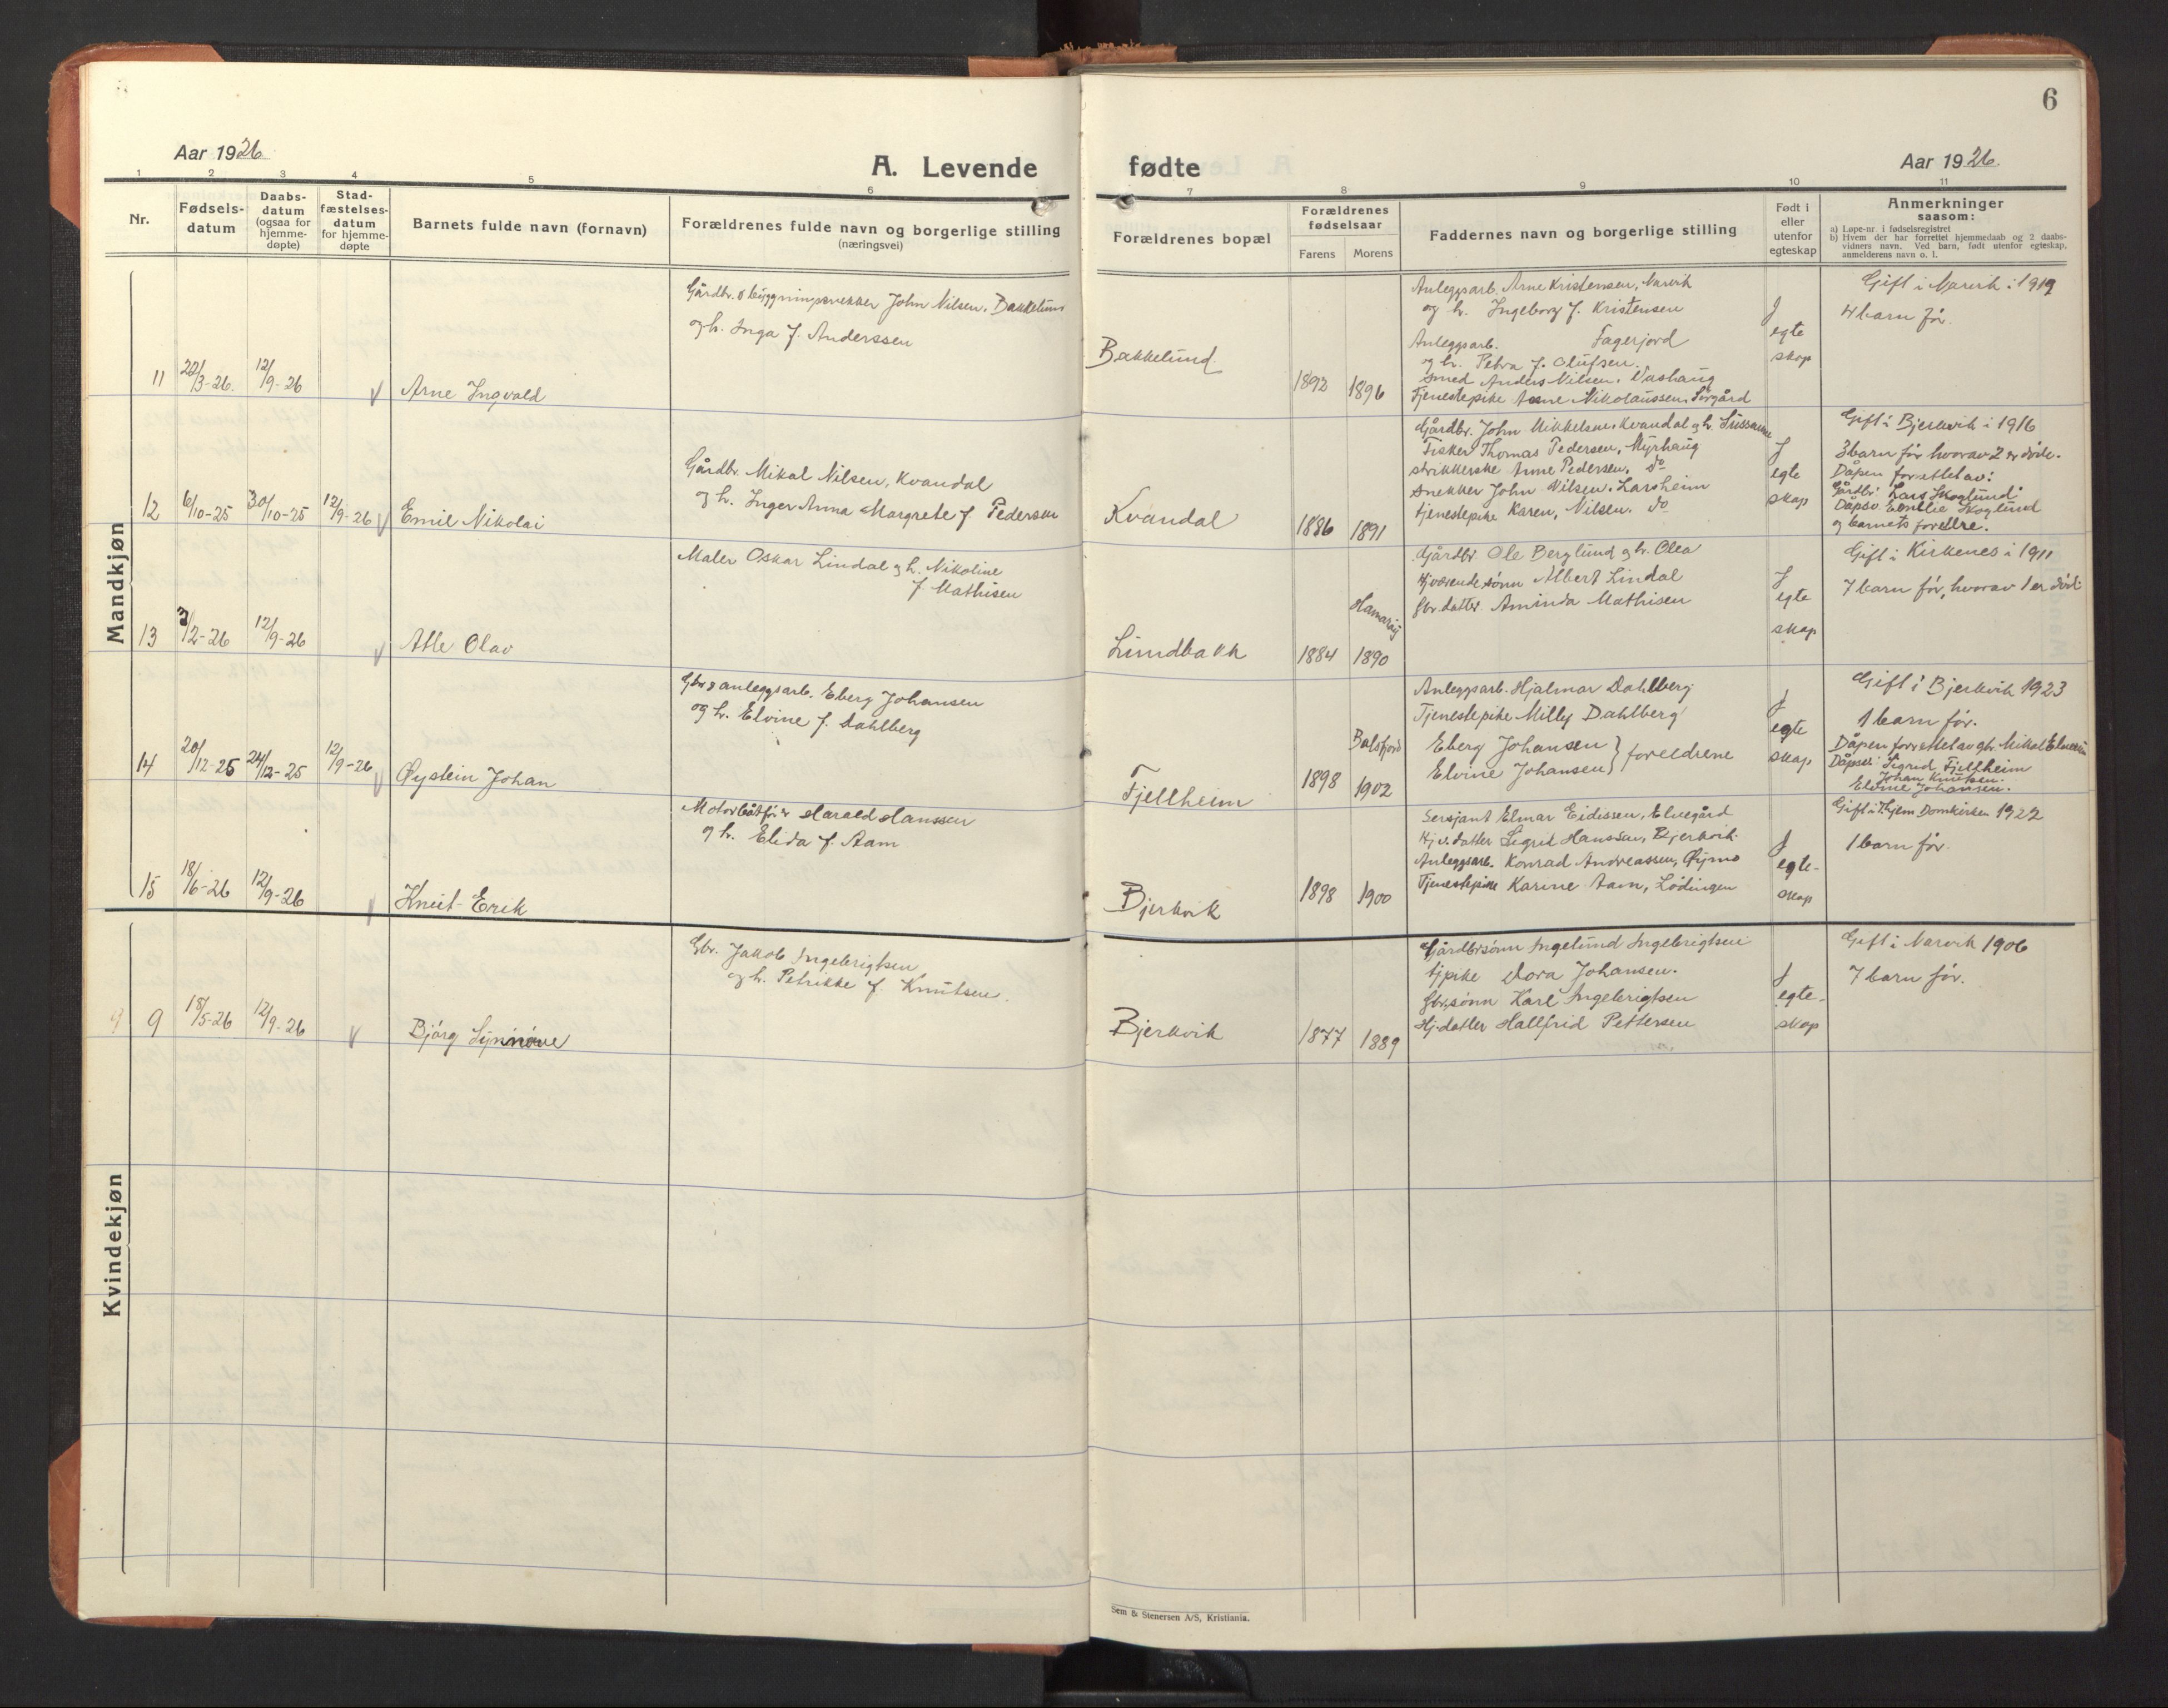 6
Aar 1926
A. Levende fødte
Aar 1926.
1 2 3 4 5 6 7 8 9 10 11
Nr.
Fødsels-
datum
Daabs-
datum
(ogsaa for
hjemme-
døpte)
Stad-
fæstelses-
datum
for hjemme-
døpte
Barnets fulde navn (fornavn)
Forældrenes fulde navn og borgerlige stilling
(næringsvei)
Forældrenes bopæl
Forældrenes
fødselsaar
Farens Morens
Faddernes navn og borgerlige stilling
Født i
eller
utenfor
egteskap
Anmerkninger
saasom:
a) Løpe-nr. i fødselsregistret
b) Hvem der har forrettet hjemmedaab og 2 daabs-
vidners navn. Ved barn, født utenfor egteskap,
anmelderens navn o. l.
Mandkjøn
11 22/3-26. 12/9-26 Arne Ingvald
Gårdbr. o byggningssnekker John Nilsen. Bakkelund
og h. Inga f. Anderssen
Bakkelund.
1892 1896
Anleggsarb. Arne Kristensen, Narvik
og h. Ingeborg f. Kristensen
Anleggsarb. Fagerjord
og h. Petra f. Olufsen.
Smed Anders Nilsen.
Tjenestepike Anne Nikolaussen, Sørgård
I
egte
skap
Gift i Narvik i 1919
4 barn før.
12 6/10-25 30/10-25 12/9-26 Emil Nikolai
Gårdbr. Mikal Nilsen, Kvandal
og h. Inger Anna Margrete f. Pedersen
Kvandal
1886 1891
Gårdbr. John Mikkelsen, Kvandal og h. Susanne
Fisker Thomas Pedersen, Myrhaug
strikkerske Anne Pedersen, do
Snekker John Nilsen. Larsheim
tjenestepike Karen, Nilsen. do
I
egte
skap
Gift i Bjerkvik i 1916
3 barn før hvorav 2 er døde.
Dåpen forrettet av:
Gårdbr. Lars Skoglund
Dåpsv. Emelie Skoglund
og barnets foreldre.
13 3/2-26 12/9-26 Atle Olav
Maler Oskar Lindal og h. Nikoline
f. Mathisen
Lundbakk
1884 1890
Hamarøy
Gårdbr. Ole Berglund og h. Olea
Hjværende sønn Albert Lindal
Gbr.datter. Aminda Mathisen
I
egte
skap
Gift i Kirkenes i 1911
7 barn før, hvorav 1 er død.
14 20/12-25 24/12-25 12/9-26 Øystein Johan
Gbr. o anleggsarb. Eberg Johansen
og h. Elvine f. Dahlberg
Fjellheim
1898 1902
Balsfjord
Anleggsarb. Hjalmar Dahlberg
Tjenestepike Milly Dahlberg
Eberg Johansen } foreldrene
Elvine Johansen
I
egte
skap
Gift i Bjerkvik 1923
1 barn før.
Dåpen forrettet av gbr. Mikal
Dåpsv: Sigrid Fjellheim
Johan Knutsen.
Elvine Johansen.
15 18/6-26 12/9-26 Knut-Erik
Motorbåtfør Harald Hanssen
og h. Elida f. Aam
Bjerkvik
1898 1900
Sersjant Elmar Eidissen, Elvegård
Hj.v. datter Sigrid Hanssen, Bjerkvik.
Anleggsarb. Konrad Andreassen,
Tjenestepike Karine Aam, Lødingen
I
egte-
skap
Gift i Thjem Domkirken 1922
1 barn før.
Kvindekjøn
9 9 18/5-26 12/9-26 Bjørg Synnøve
Gbr. Jakob Ingebrigtsen
og h. Petrikke f. Knutsen.
Bjerkvik
1877 1889
Gårdbr.sønn Ingelund Ingebrigtsen
tjpike Dora Johansen.
Gbr.sønn Karl Ingebrigtsen
Hj.datter Hallfrid Pettersen
I
egte-
skap
Gift i Narvik 1906
7 barn før.
Sem & Stenersen A/S, Kristiania.